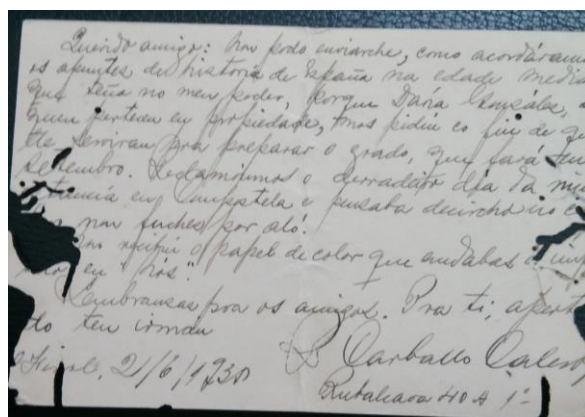 Querido amigo: Non podo enviarche, como acordáramos
os apuntes de historia de España na edade media
que tiña no meu poder, porque Daría González, a
quen perteñen en propiedade, mos pidiu co fin de que
lle serviran pra preparar o grado, que fará en
setembro. derradeiro día da miña
en Compostela e pensaba decircho no
non fuches por aló.
recibín o papel de color que andabas
en "Nós".
Lembranzas pra os amigos. Pra ti, aperta
do teu irman
R Carballo Calero
Ferrol, 21/6/1930
Rubalcava 40 A 1º